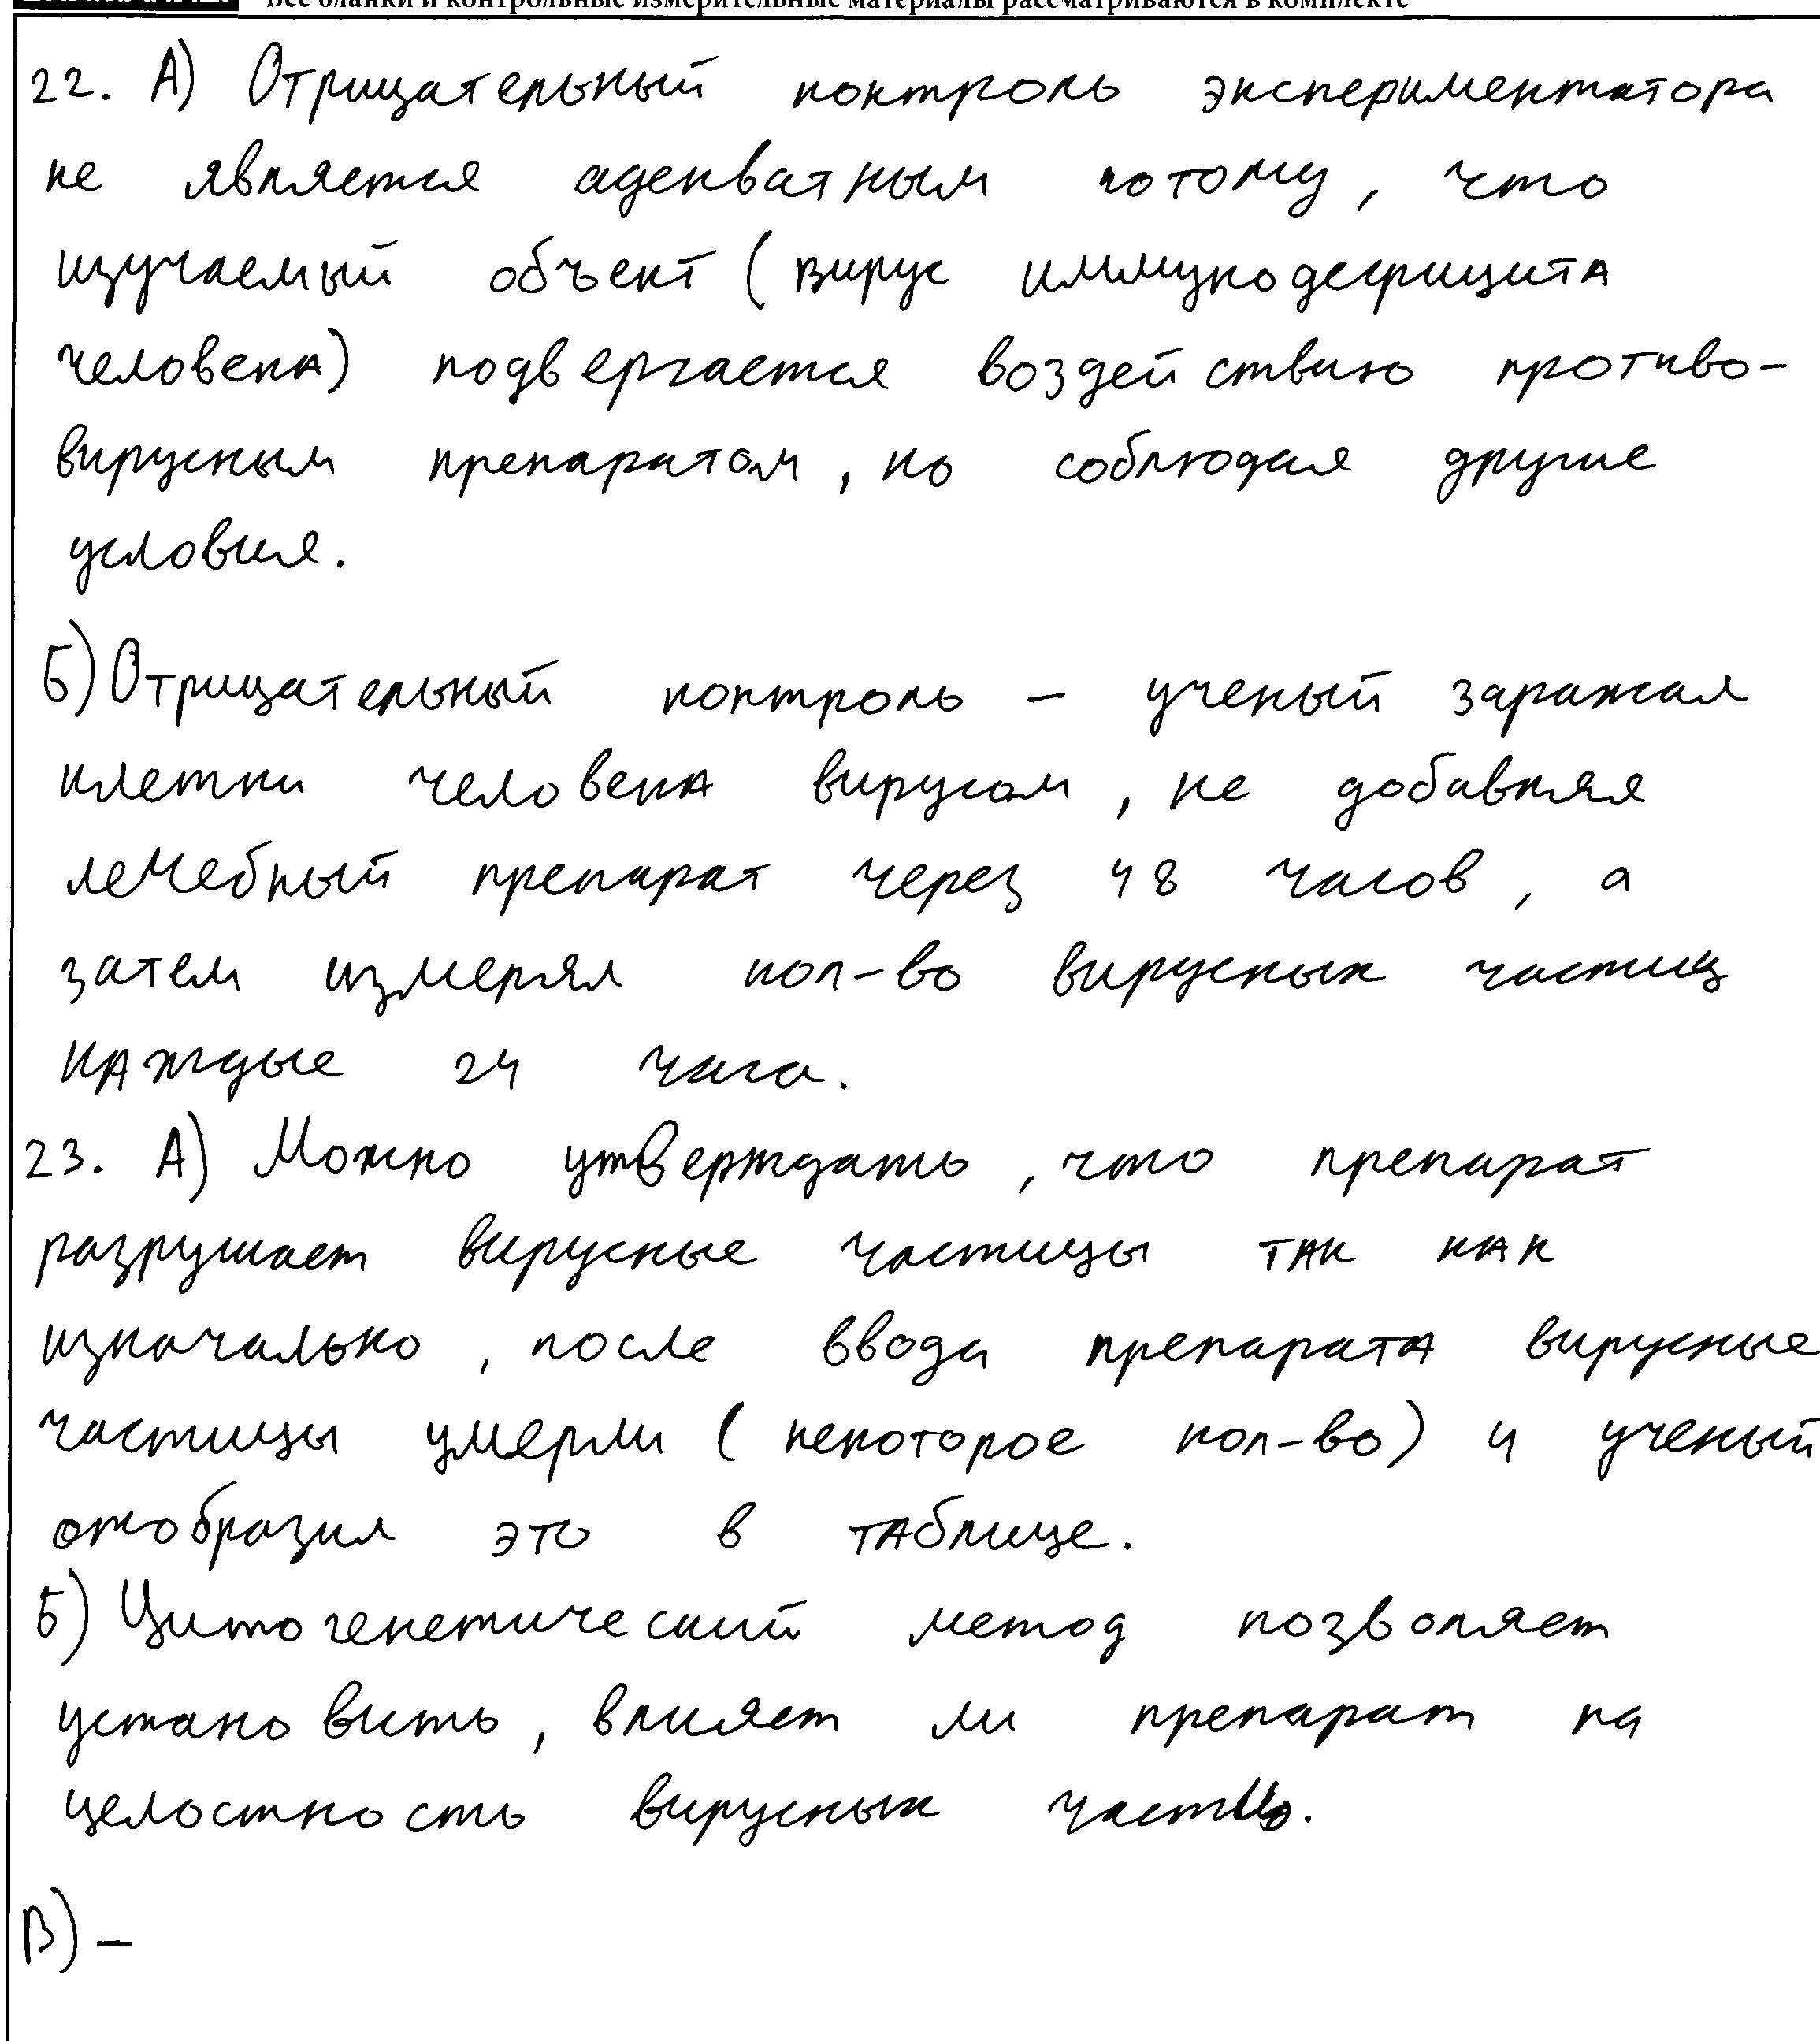 Все бланки и контрольные измерительные материалы рассматриваются в комплекте
22. А) Отрицательный контроль экспериментатора
не является адекватным потому, что
изучаемый объект (вирус иммунодефицита
человека) подвергается воздействию противо-
вирусным препаратом, но соблюдая другие
условия.
Б) Отрицательный контроль – ученый заражал
клетки человека вирусом, не добавляя
лечебный препарат через 48 часов, а
затем измерял кол-во вирусных частиц
каждые 24 часа.
23. А) Можно утверждать, что препарат
разрушает вирусные частицы так как
изначально, после ввода препарата вирусные
частицы умерли (некоторое кол-во) и ученый
отобразил это в таблице.
Б) Цитогенетический метод позволяет
установить, влияет ли препарат на
целостность вирусных частиц.
В) –